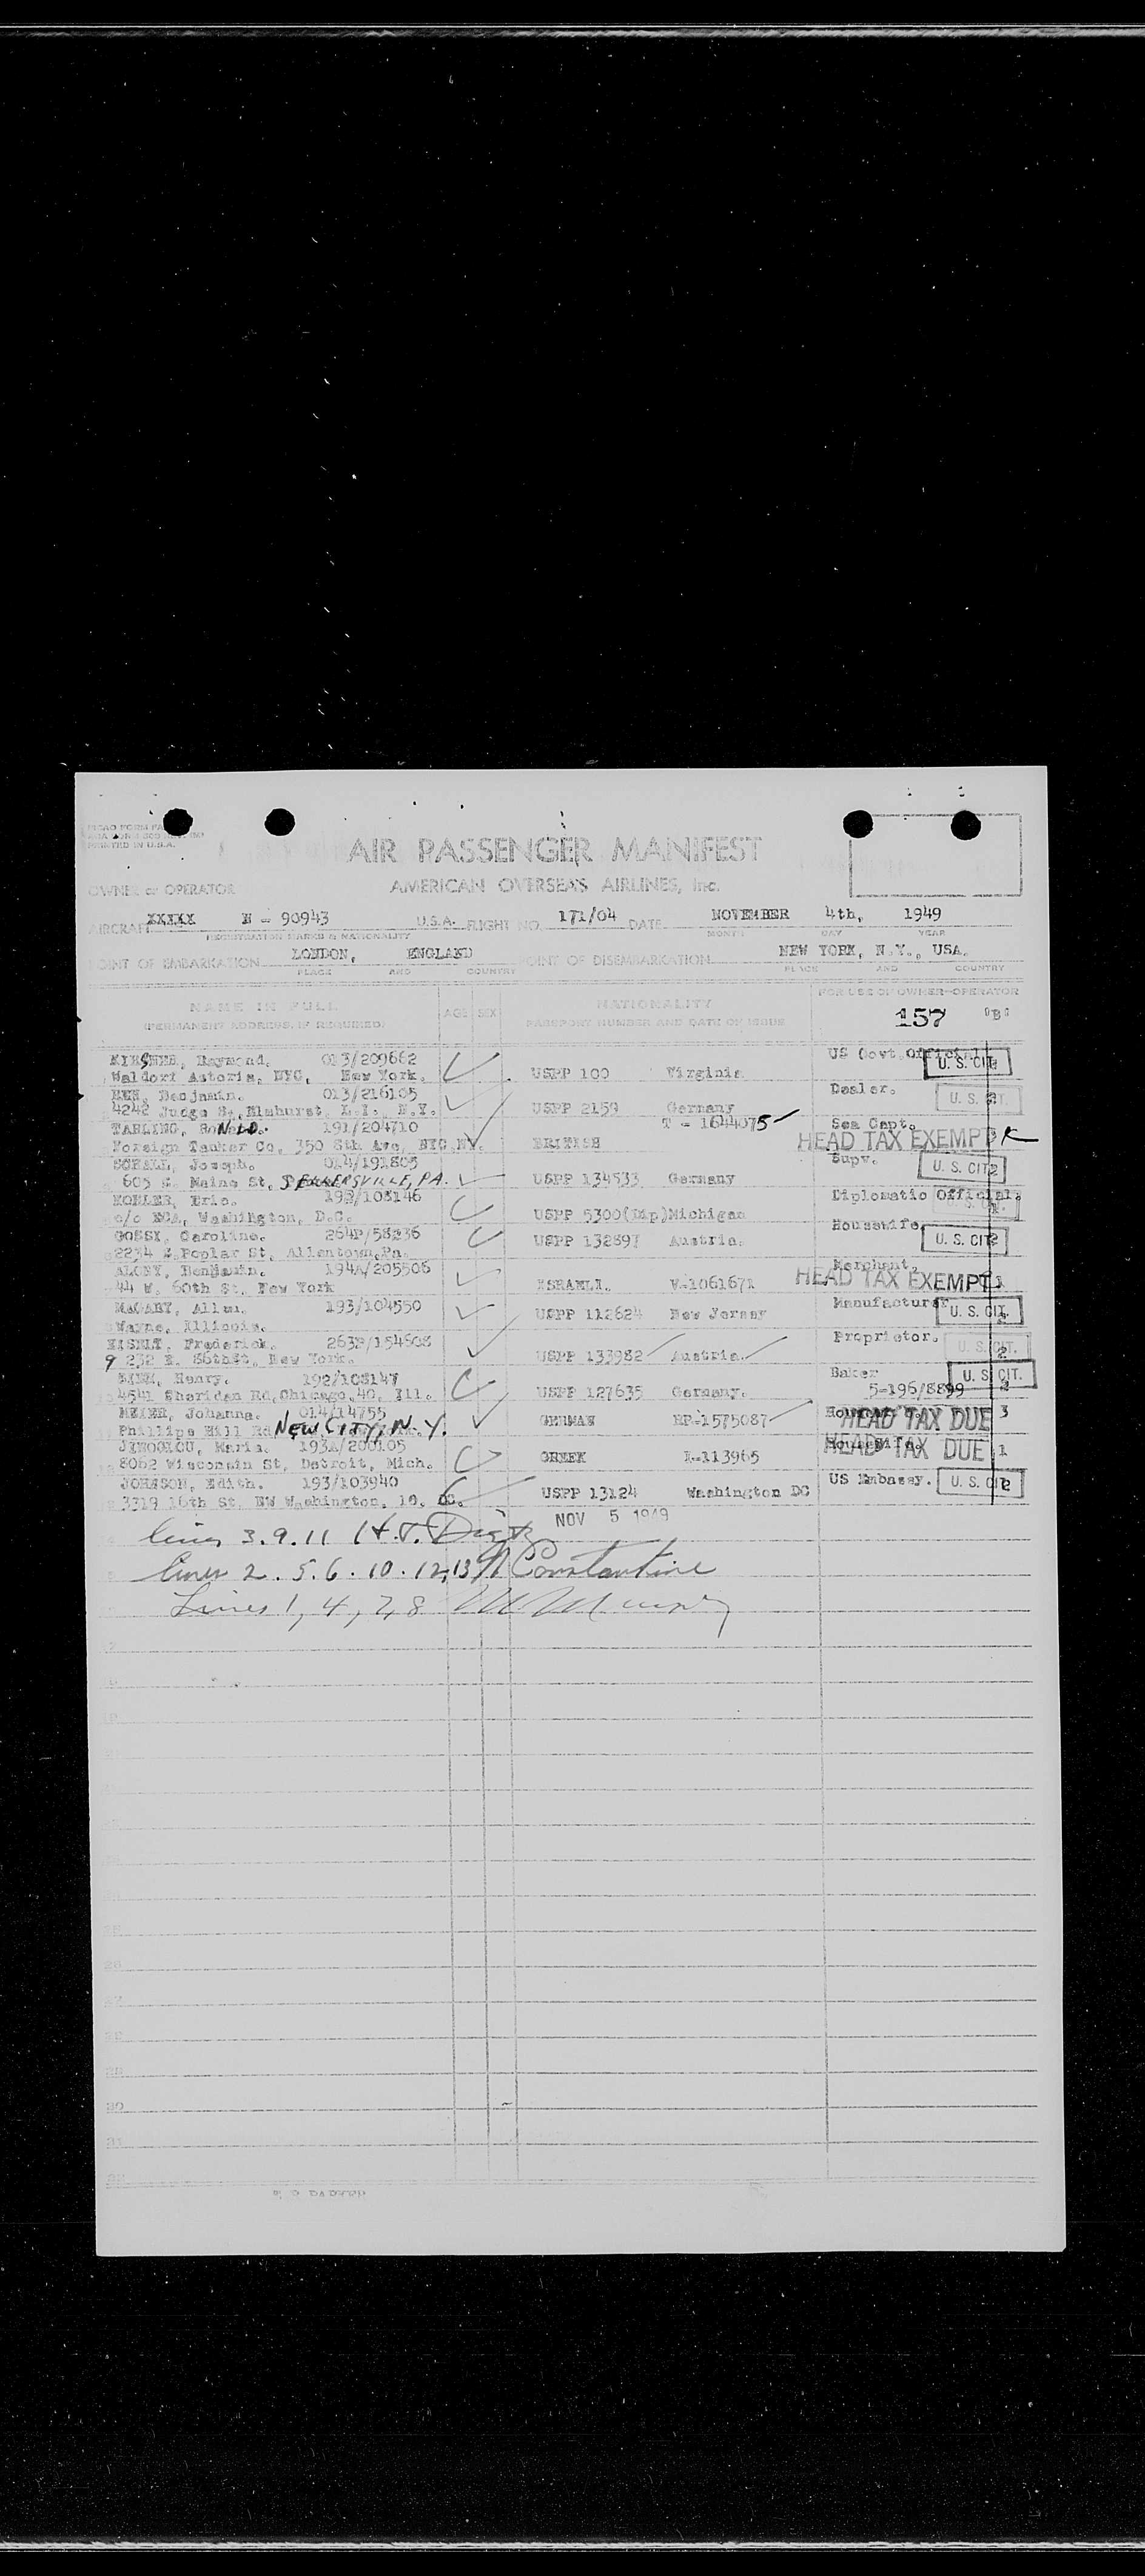 PRINTED IN U.S.A.
AIR PASSENGER MANIFEST
OWNER or OPERATOR AMERICAN OVERSEAS AIRLINES, Inc.
AIRCRAFT XXXXX N - 90943 U.S.A. FLIGHT NO. 171/04 DATE NOVEMBER 4th, 1949
REGISTRATION MARKS & NATIONALITY MONTH DAY YEAR
POINT OF EMBARKATION LONDON, ENGLAND POINT OF DISEMBARKATION NEW YORK, N.Y., USA.
PLACE AND COUNTRY PLACE AND COUNTRY
NAME IN FULL AGE SEX NATIONALITY FOR USE OF OWNER-OPERATOR
(PERMANENT ADDRESS, IF REQUIRED) PASSPORT NUMBER AND DATE OF ISSUE 157 "B"
Raymond. 013/209662 US Govt Official
Waldorf Astoria, NYC, New York. USPP 100 Virginia U. S. CIT.
Benjamin. 013/216105 Dealer.
4242 Judge St, Elmhurst, L.I. N.Y. USPP 2159 Germany U. S. CIT.
TARLING, NLD. 191/204710 T - 1644075 Sea Capt.
Foreign Tanker Co, 350 8th Ave, NYC NY. BRITISH HEAD TAX EXEMPT
Joseph. 014/191805 Supv.
605 S. Maine St, SELLERSVILLE, PA. USPP 134533 Germany U. S. CIT
KOHLER, Eric. 192/108146 Diplomatic Official.
c/o ECA, Washington, D.C. USPP 5300(Dip) Michigan U. S. CIT.
GOSSY, Caroline. 264P/58236 Housewife.
2234 S. Poplar St, Allentown, Pa. USPP 132897 Austria. U. S. CIT
Benjamin. 194A/205506 Merchant.
44 W. 60th St. New York ISRAELI. V-1061671 HEAD TAX EXEMPT 1
MAGARY, Allen. 193/104550 Manufacturer
Wayne, Illinois. USPP 112624 New Jersey U. S. CIT.
EISELT, Frederick. 263P/154608 Proprietor.
9 232 E. 86thSt, New York. USPP 133982 Austria. U. S. CIT.
Henry. 192/108147 Baker U. S. CIT.
4541 Sheridan Rd, Chicago, 40, Ill. USPP 127635 Germany. 5-196/8899 2
MEIER, Johanna. 014/14755 HEAD TAX DUE 3
Phillips Hill Rd NEW CITY, N.Y. GERMAN RP-1575087
Maria. 193A/200105 HEAD TAX DUE 1
8062 Wisconsin St, Detroit, Mich. GREEK I-113965
JOHNSON, Edith. 193/103940 US Embassy. U. S. CIT
3319 16th St. NW Washington, 10. DC. USPP 13124 Washington DC
NOV 5 1949
lines 3. 9. 11
lines 2. 5. 6. 10. 12, 13 Constantine
Lines 1, 4, 7, 8